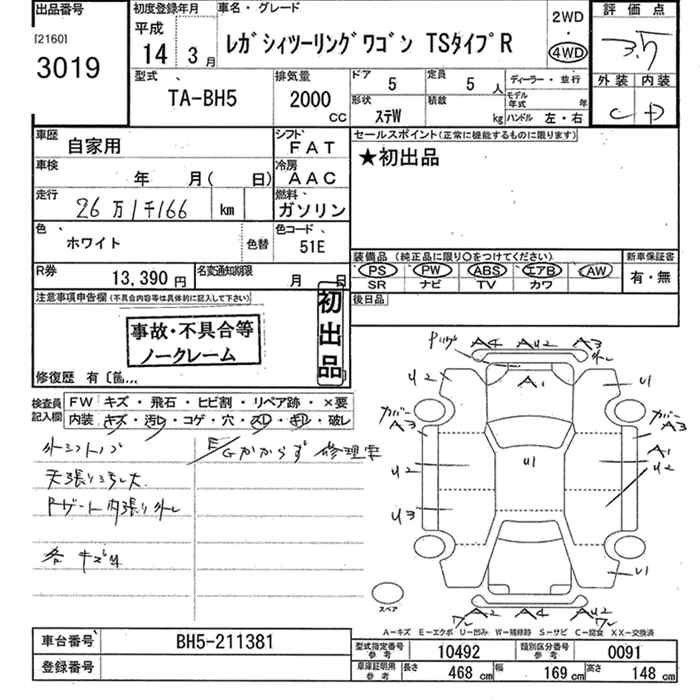 出品番号
[2160]
3019
初度登録年月
平成
14年 3月
車名・グレード
レガシィツーリングワゴン TSタイプR
2WD
・
4WD
評価点
3.5
外装 内装
C D
型式
TA-BH5
排気量
2000
CC
ドア 5
定員 5 人
形状 ステW
積載 kg
ディーラー・並行
モデル年式 年
ハンドル 左・右
車歴 自家用
シフト FAT
セールスポイント(正常に機能するものに限ります)
★初出品
車検 年 月( 日)
冷房 AAC
走行 26万1千166 km
燃料 ガソリン
色 ホワイト
色替
色コード 51E
装備品 (純正品に限り○をつけてください)
PS PW ABS エアB AW
SR ナビ TV カワ
新車保証書
有・無
R券 13,390円
名変通知期限 月 日
後日品
注意事項申告欄(不具合内容等は具体的に記入して下さい)
事故・不具合等
ノークレーム
初出品
修復歴 有
検査員記入欄
FW キズ・飛石・ヒビ割・リペア跡・×要
内装 キズ・汚レ・コゲ・穴・スレ・キレ・破レ
外シフトノブ
E/Gかからず 修理歴
天張り汚レ大
Rゲート内張り外レ
各 キズ凹
A4 AU2 A3
U2 A1 U1
カバー A3
カバー A3
U2 U1 A1 U2
U3
U1
スペア
A2 A4 AU2
ワレ ワレ
A-キズ E-エクボ U-凹み W-補修跡 S-サビ C-腐食 XX-交換済
車台番号 BH5-211381
登録番号
型式指定番号 参考 10492
類別区分番号 参考 0091
車庫証明用 参考
長さ 468 cm
幅 169 cm
高さ 148 cm